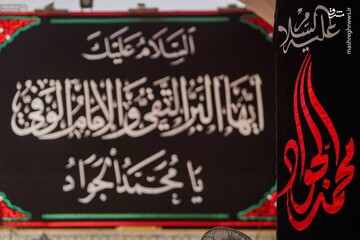 السَّلامُ عَلَیْکَ
اَیُّهَا البَرُّ التَّقِیُّ وَ الاِمامُ الوَفِیُّ
یا مُحَمَّدُ الجَواد
علیه السلام
محمد الجواد
mashreghnews.ir